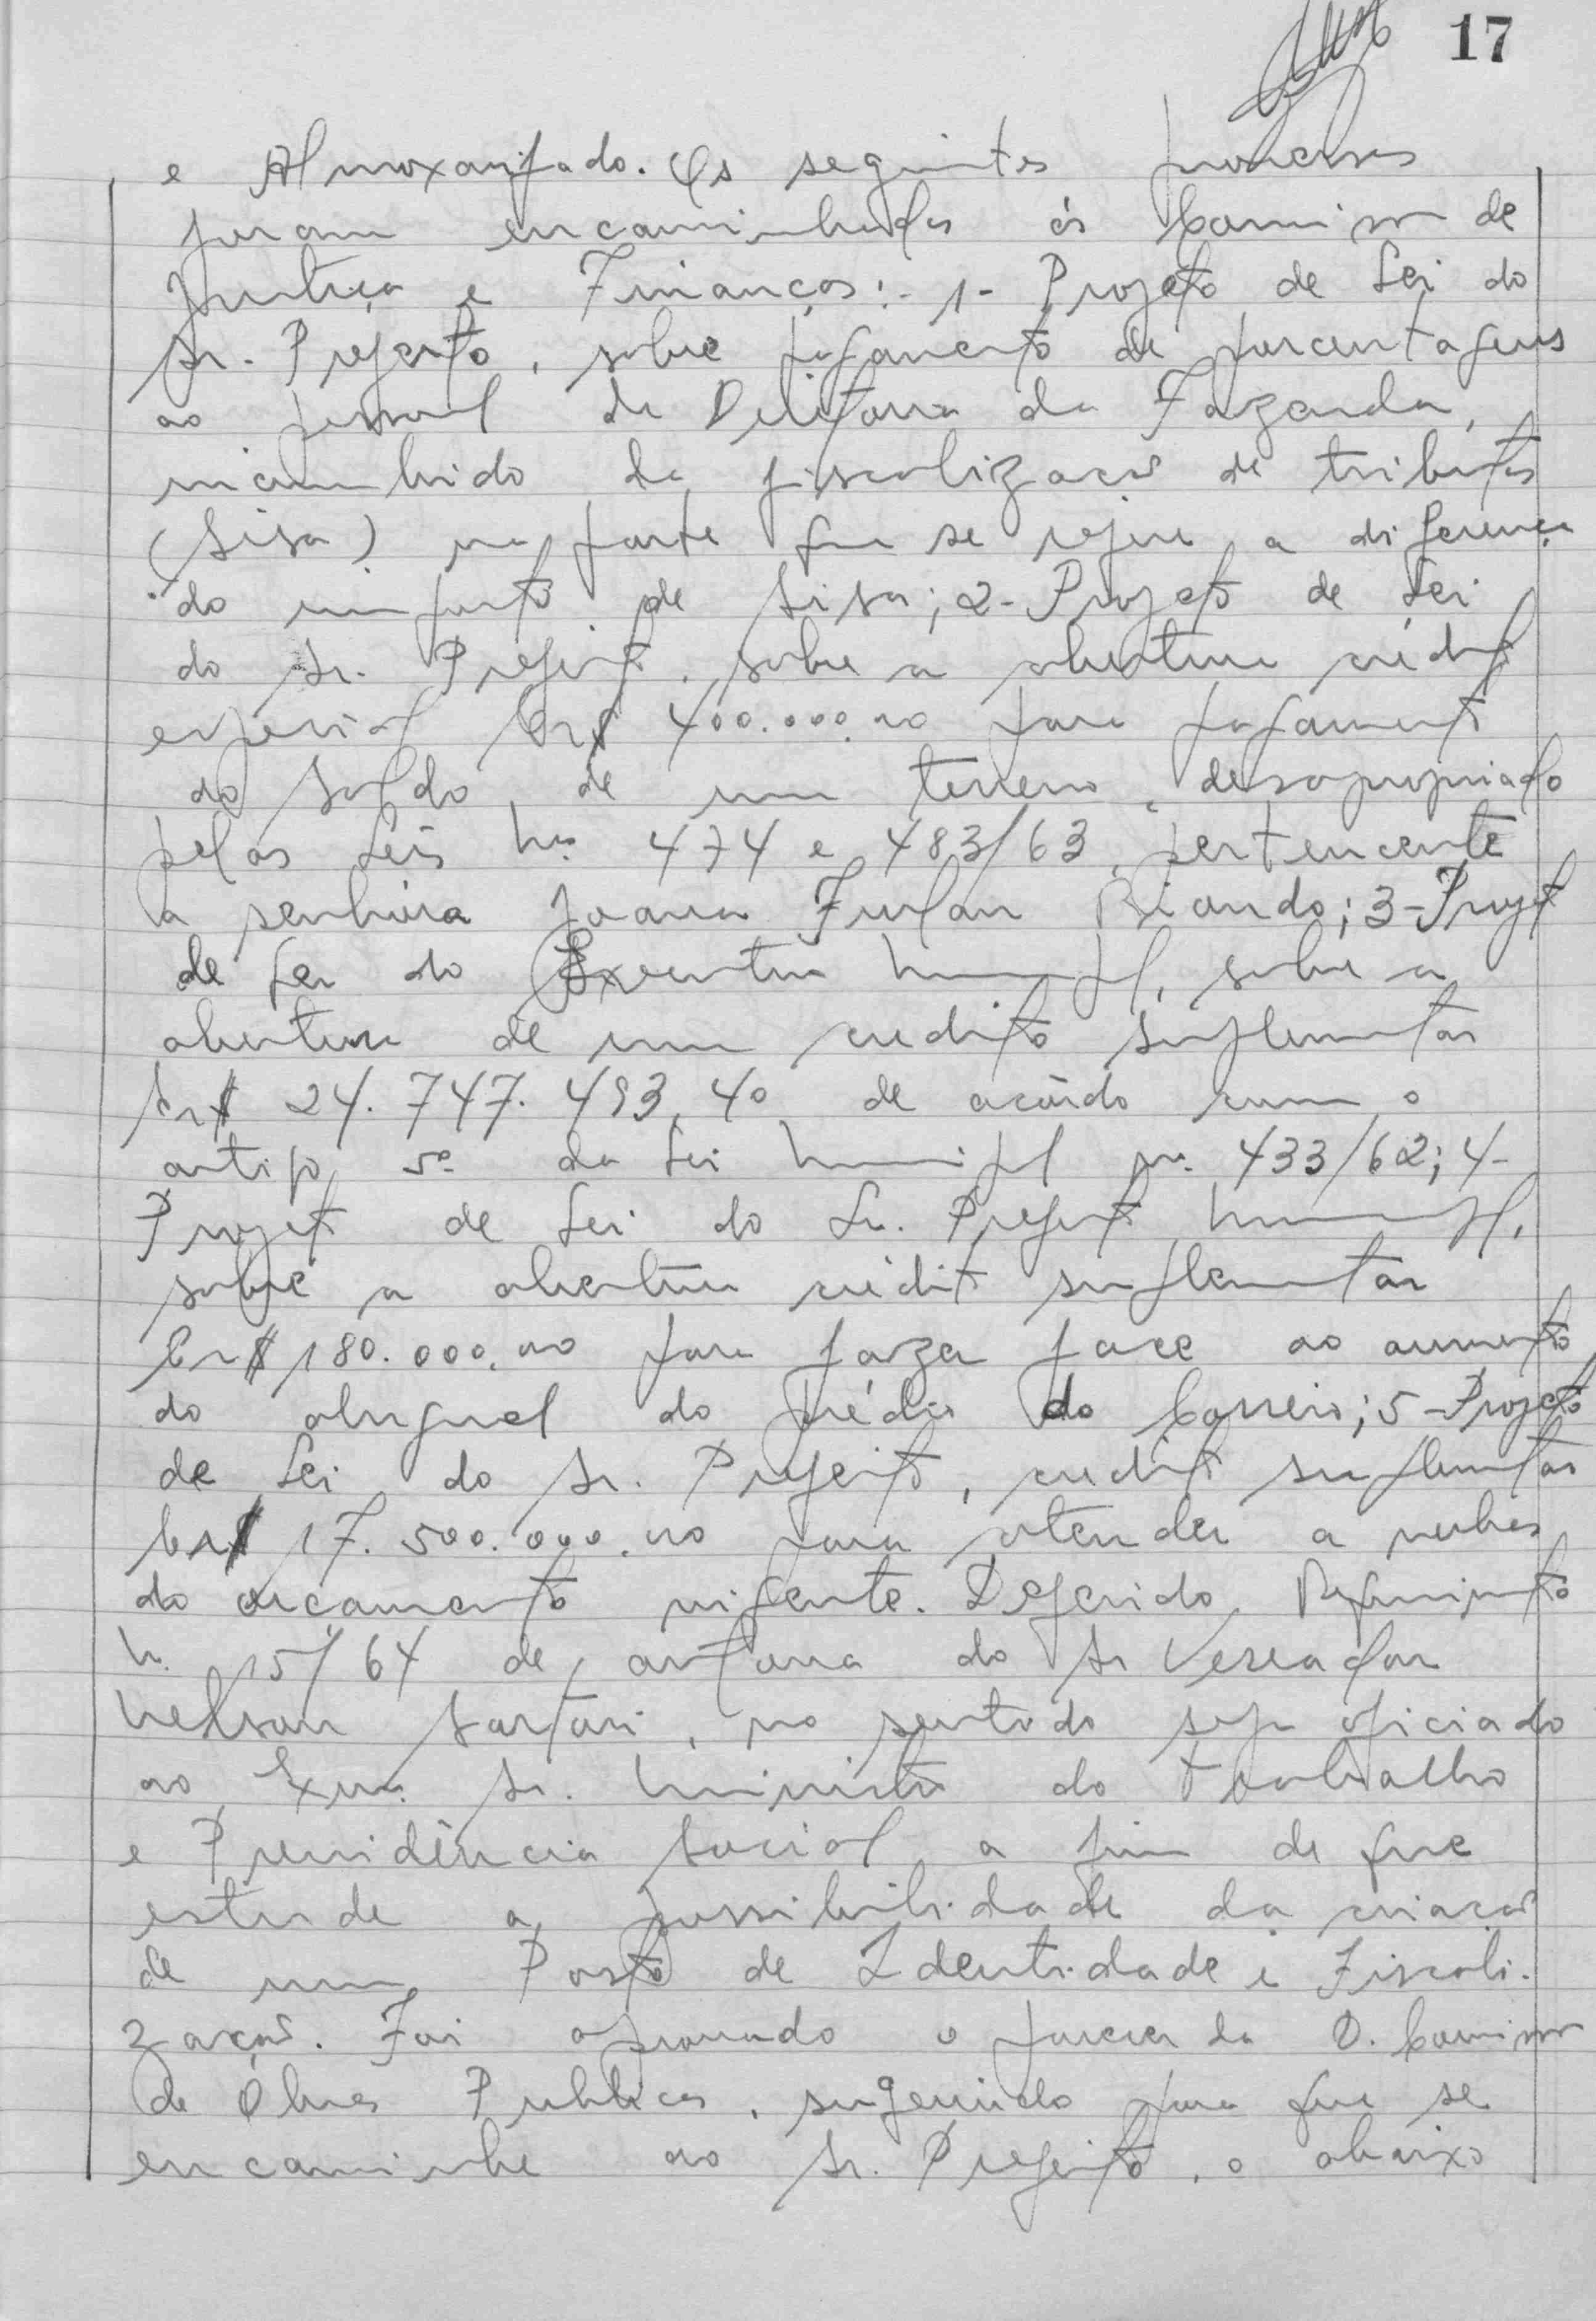 17
e Almoxarifado. Os seguintes processos
foram encaminhados ás Comissão de
Justiça e Finanças:- 1- Projeto de Lei do
Sr. Prefeito, sobre pagamento de porcentagens
ao pessoal da Diretoria da Fazenda,
incumbido da fiscalização de tributos
(Sisa) na parte que se refere a diferença
do imposto de Sisa; 2- Projeto de Lei
do Sr. Prefeito, sobre a abertura crédito
especial Cr$ 400.000,00 para pagamento
do saldo de um terreno desapropriado
pelas Leis Nº 474 e 483/63, pertencente
a senhora Joana Furlan Biando; 3- Projeto
de Lei do Executivo Municipal, sobre a
abertura de um credito suplementar
Cr$ 24.747.493,40 de acôrdo com o
artigo 5º da Lei Municipal nº 433/62; 4-
Projeto de Lei do Sr. Prefeito Municipal,
sobre a abertura crédito suplementar
Cr$ 180.000,00 para fazer face ao aumento
do aluguel do prédio do Correio; 5- Projeto
de Lei do Sr. Prefeito, credito suplementar
Cr$ 17.500.000,00 para atender a verbas
do orçamento vigente. Deferido Requerimento
N. 15/64 de autoria do Sr Vereador
Nelson Sartori, no sentido seja oficiado
ao Exmo. Sr. Ministro do Trabalho
e Previdência Social a fim de que
estude a possibilidade da criação
de um Posto de Identidade e Fiscali-
zação. Foi aprovado o parecer da D. Comissão
de Obras Publicas, sugerindo para que se
encaminhe ao Sr. Prefeito, o abaixo